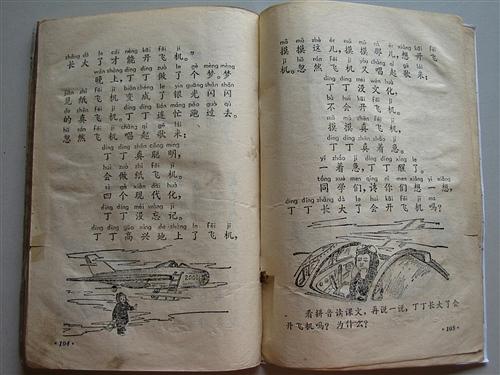 zhǎng dà le cái néng kāi fēi jī
长大了才能开飞机。
wǎn shàng dīng dīng zuò le gè mèng mèng
晚上,丁丁做了个梦。梦
jiàn zhǐ fēi jī biàn chéng le yín guāng shǎn shǎn
见纸飞机变成了银光闪闪
de zhēn fēi jī dīng dīng lián máng pǎo guò qù
的真飞机,丁丁连忙跑过去。
hū rán fēi jī chàng qǐ gē lái
忽然飞机唱起歌来:
dīng dīng zhēn cōng míng
丁丁真聪明,
huì zuò zhǐ fēi jī
会做纸飞机,
sì gè xiàn dài huà
四个现代化,
dīng dīng méi wàng jì
丁丁没忘记。
dīng dīng gāo xìng de shàng le fēi jī
丁丁高兴地上了飞机,
·104·
mō mō zhè r mō mō nà r xiǎng kāi fēi
摸摸这儿,摸摸那儿,想开飞
jī hū rán fēi jī yòu chàng qǐ gē lái
机。忽然飞机又唱起歌来:
dīng dīng méi wén huà
丁丁没文化,
bù huì kāi fēi jī
不会开飞机。
mō mō zhēn fēi jī
摸摸真飞机,
dīng dīng zhēn zháo jí
丁丁真着急。
yì zháo jí dīng dīng xǐng le
一着急,丁丁醒了。
tóng xué men qǐng nǐ men xiǎng yi xiǎng
同学们,请你们想一想,
dīng dīng zhǎng dà le huì kāi fēi jī ma
丁丁长大了会开飞机吗?
看拼音读课文,再说一说,丁丁长大了会
开飞机吗?为什么?
·105·